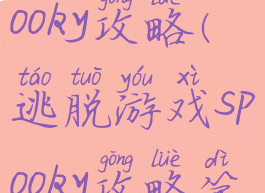 gōng lüè
ooky攻略(
táo tuō yóu xì
逃脱游戏SP
gōng lüè dì
ooky攻略